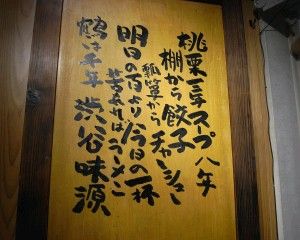 桃栗三年スープ八年
棚から餃子
瓢箪からチャーシュー
明日の百より今日の一杯
苦あればラーメン
鶴は千年渋谷味源